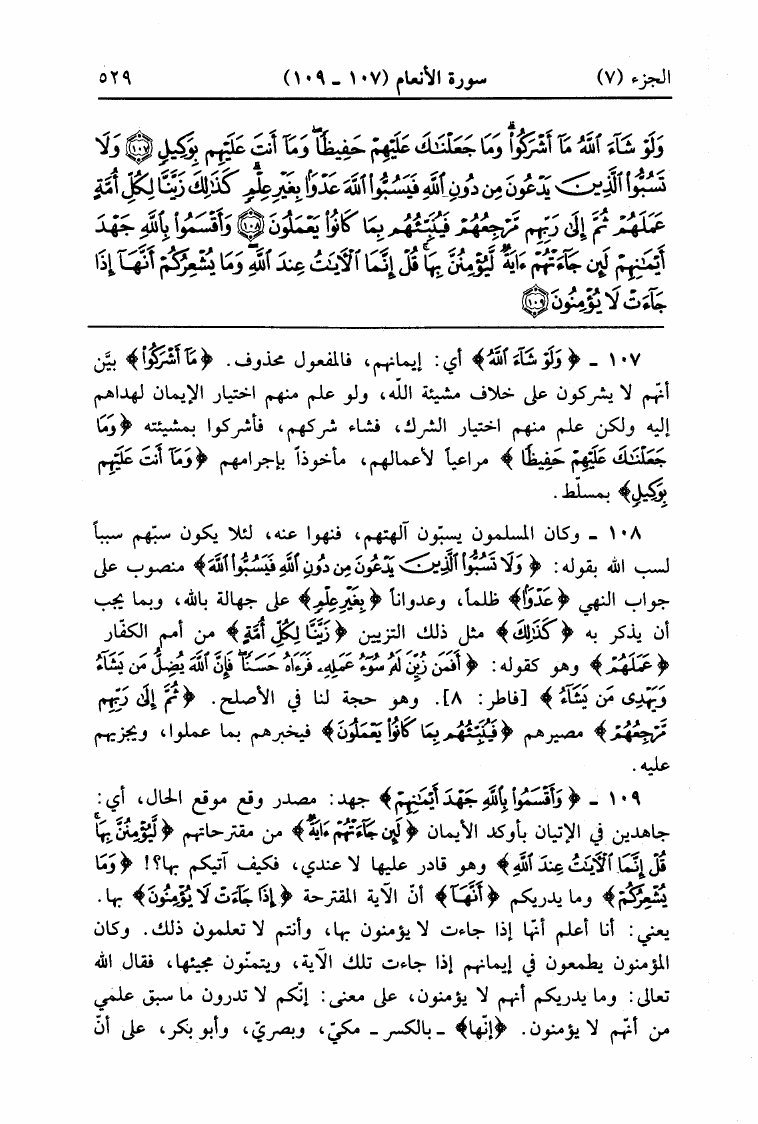 الجزء (٧) سورة الأنعام (١٠٧ ـ ١٠٩) ٥٢٩
وَلَوْ شَآءَ ٱللَّهُ مَآ أَشْرَكُوا۟ۗ وَمَا جَعَلْنَٰكَ عَلَيْهِمْ حَفِيظًاۖ وَمَآ أَنتَ عَلَيْهِم بِوَكِيلٍ ۝١٠٧ وَلَا
تَسُبُّوا۟ ٱلَّذِينَ يَدْعُونَ مِن دُونِ ٱللَّهِ فَيَسُبُّوا۟ ٱللَّهَ عَدْوًۢا بِغَيْرِ عِلْمٍۗ كَذَٰلِكَ زَيَّنَّا لِكُلِّ أُمَّةٍ
عَمَلَهُمْ ثُمَّ إِلَىٰ رَبِّهِم مَّرْجِعُهُمْ فَيُنَبِّئُهُم بِمَا كَانُوا۟ يَعْمَلُونَ ۝١٠٨ وَأَقْسَمُوا۟ بِٱللَّهِ جَهْدَ
أَيْمَٰنِهِمْ لَئِن جَآءَتْهُمْ ءَايَةٌ لَّيُؤْمِنُنَّ بِهَاۚ قُلْ إِنَّمَا ٱلْءَايَٰتُ عِندَ ٱللَّهِۖ وَمَا يُشْعِرُكُمْ أَنَّهَآ إِذَا
جَآءَتْ لَا يُؤْمِنُونَ ۝١٠٩
١٠٧ ـ ﴿وَلَوْ شَآءَ ٱللَّهُ﴾ أي: إيمانهم، فالمفعول محذوف. ﴿مَآ أَشْرَكُوا۟﴾ بيَّن
أنّهم لا يشركون على خلاف مشيئة اللّه، ولو علم منهم اختيار الإيمان لهداهم
إليه ولكن علم منهم اختيار الشرك، فشاء شركهم، فأشركوا بمشيئته ﴿وَمَا
جَعَلْنَٰكَ عَلَيْهِمْ حَفِيظًا﴾ مراعياً لأعمالهم، مأخوذاً بإجرامهم ﴿وَمَآ أَنتَ عَلَيْهِم
بِوَكِيلٍ﴾ بمسلّط.
١٠٨ ـ وكان المسلمون يسبّون آلهتهم، فنهوا عنه، لئلا يكون سبّهم سبباً
لسب الله بقوله: ﴿وَلَا تَسُبُّوا۟ ٱلَّذِينَ يَدْعُونَ مِن دُونِ ٱللَّهِ فَيَسُبُّوا۟ ٱللَّهَ﴾ منصوب على
جواب النهي ﴿عَدْوًۢا﴾ ظلماً، وعدواناً ﴿بِغَيْرِ عِلْمٍ﴾ على جهالة بالله، وبما يجب
أن يذكر به ﴿كَذَٰلِكَ﴾ مثل ذلك التزيين ﴿زَيَّنَّا لِكُلِّ أُمَّةٍ﴾ من أمم الكفّار
﴿عَمَلَهُمْ﴾ وهو كقوله: ﴿أَفَمَن زُيِّنَ لَهُۥ سُوٓءُ عَمَلِهِۦ فَرَءَاهُ حَسَنًاۖ فَإِنَّ ٱللَّهَ يُضِلُّ مَن يَشَآءُ
وَيَهْدِى مَن يَشَآءُ﴾ [فاطر: ٨]. وهو حجة لنا في الأصلح. ﴿ثُمَّ إِلَىٰ رَبِّهِم
مَّرْجِعُهُمْ﴾ مصيرهم ﴿فَيُنَبِّئُهُم بِمَا كَانُوا۟ يَعْمَلُونَ﴾ فيخبرهم بما عملوا، ويجزيهم
عليه.
١٠٩ ـ ﴿وَأَقْسَمُوا۟ بِٱللَّهِ جَهْدَ أَيْمَٰنِهِمْ﴾ جهد: مصدر وقع موقع الحال، أي:
جاهدين في الإتيان بأوكد الأيمان ﴿لَئِن جَآءَتْهُمْ ءَايَةٌ﴾ من مقترحاتهم ﴿لَّيُؤْمِنُنَّ بِهَاۚ
قُلْ إِنَّمَا ٱلْءَايَٰتُ عِندَ ٱللَّهِ﴾ وهو قادر عليها لا عندي، فكيف آتيكم بها؟! ﴿وَمَا
يُشْعِرُكُمْ﴾ وما يدريكم ﴿أَنَّهَآ﴾ أنّ الآية المقترحة ﴿إِذَا جَآءَتْ لَا يُؤْمِنُونَ﴾ بها.
يعني: أنا أعلم أنها إذا جاءت لا يؤمنون بها، وأنتم لا تعلمون ذلك. وكان
المؤمنون يطمعون في إيمانهم إذا جاءت تلك الآية، ويتمنّون مجيئها، فقال الله
تعالى: وما يدريكم أنهم لا يؤمنون، على معنى: إنّكم لا تدرون ما سبق علمي
من أنّهم لا يؤمنون. ﴿إنّها﴾ ـ بالكسر ـ مكيّ، وبصريّ، وأبو بكر، على أنّ